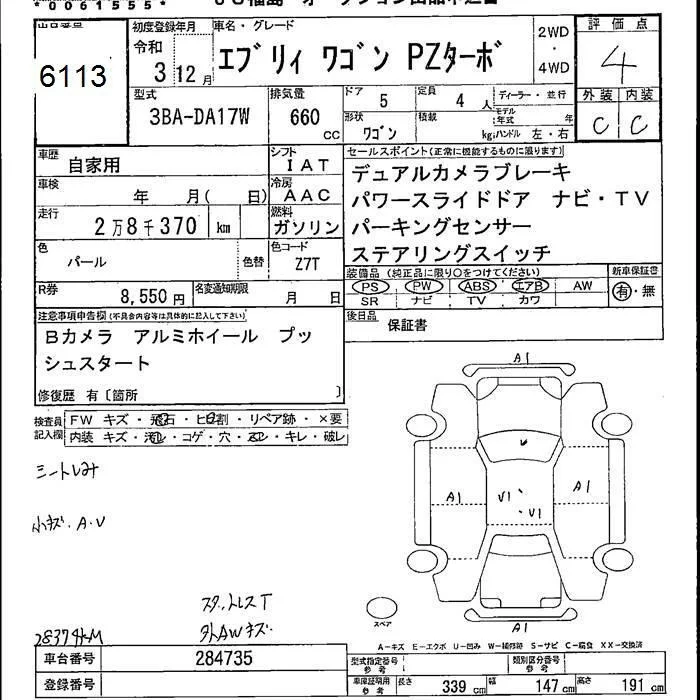 *0001555*
出品番号 6113
初度登録年月 令和 3 12月
車名・グレード エブリィ ワゴン PZターボ
2WD ・ 4WD
評価点 4
外装 内装
C C
型式 3BA-DA17W
排気量 660 cc
ドア 5 定員 4 人 ディーラー・並行
形状 ワゴン 積載 kg モデル年式 年
ハンドル 左・右
車歴 自家用
シフト IAT
車検 年 月( 日)
冷房 AAC
走行 2万8千370 km
燃料 ガソリン
色 パール 色替
色コード Z7T
R券 8,550円 名変通知期限 月 日
セールスポイント(正常に機能するものに限ります)
デュアルカメラブレーキ
パワースライドドア ナビ・TV
パーキングセンサー
ステアリングスイッチ
装備品(純正品に限り○をつけてください) 新車保証書
PS PW ABS エアB AW 有・無
SR ナビ TV カワ
後日品 保証書
注意事項申告欄(不具合内容等は具体的に記入して下さい)
Bカメラ アルミホイール プッ
シュスタート
修復歴 有〔箇所 〕
検査員記入欄
FW キズ・飛石・ヒビ割・リペア跡・×要
内装 キズ・汚れ・コゲ・穴・ ・キレ・破レ
シートしみ
小キズ.A.V
A1
A1
A1
V1
V1
A1
スペア
28374km
外AWキズ
A-キズ E-エクボ U-凹み W-補修跡 S-サビ C-腐食 XX-交換済
車台番号 284735
登録番号
型式指定番号 参考 類別区分番号 参考
車庫証明用 参考 長さ 339 cm 幅 147 cm 高さ 191 cm